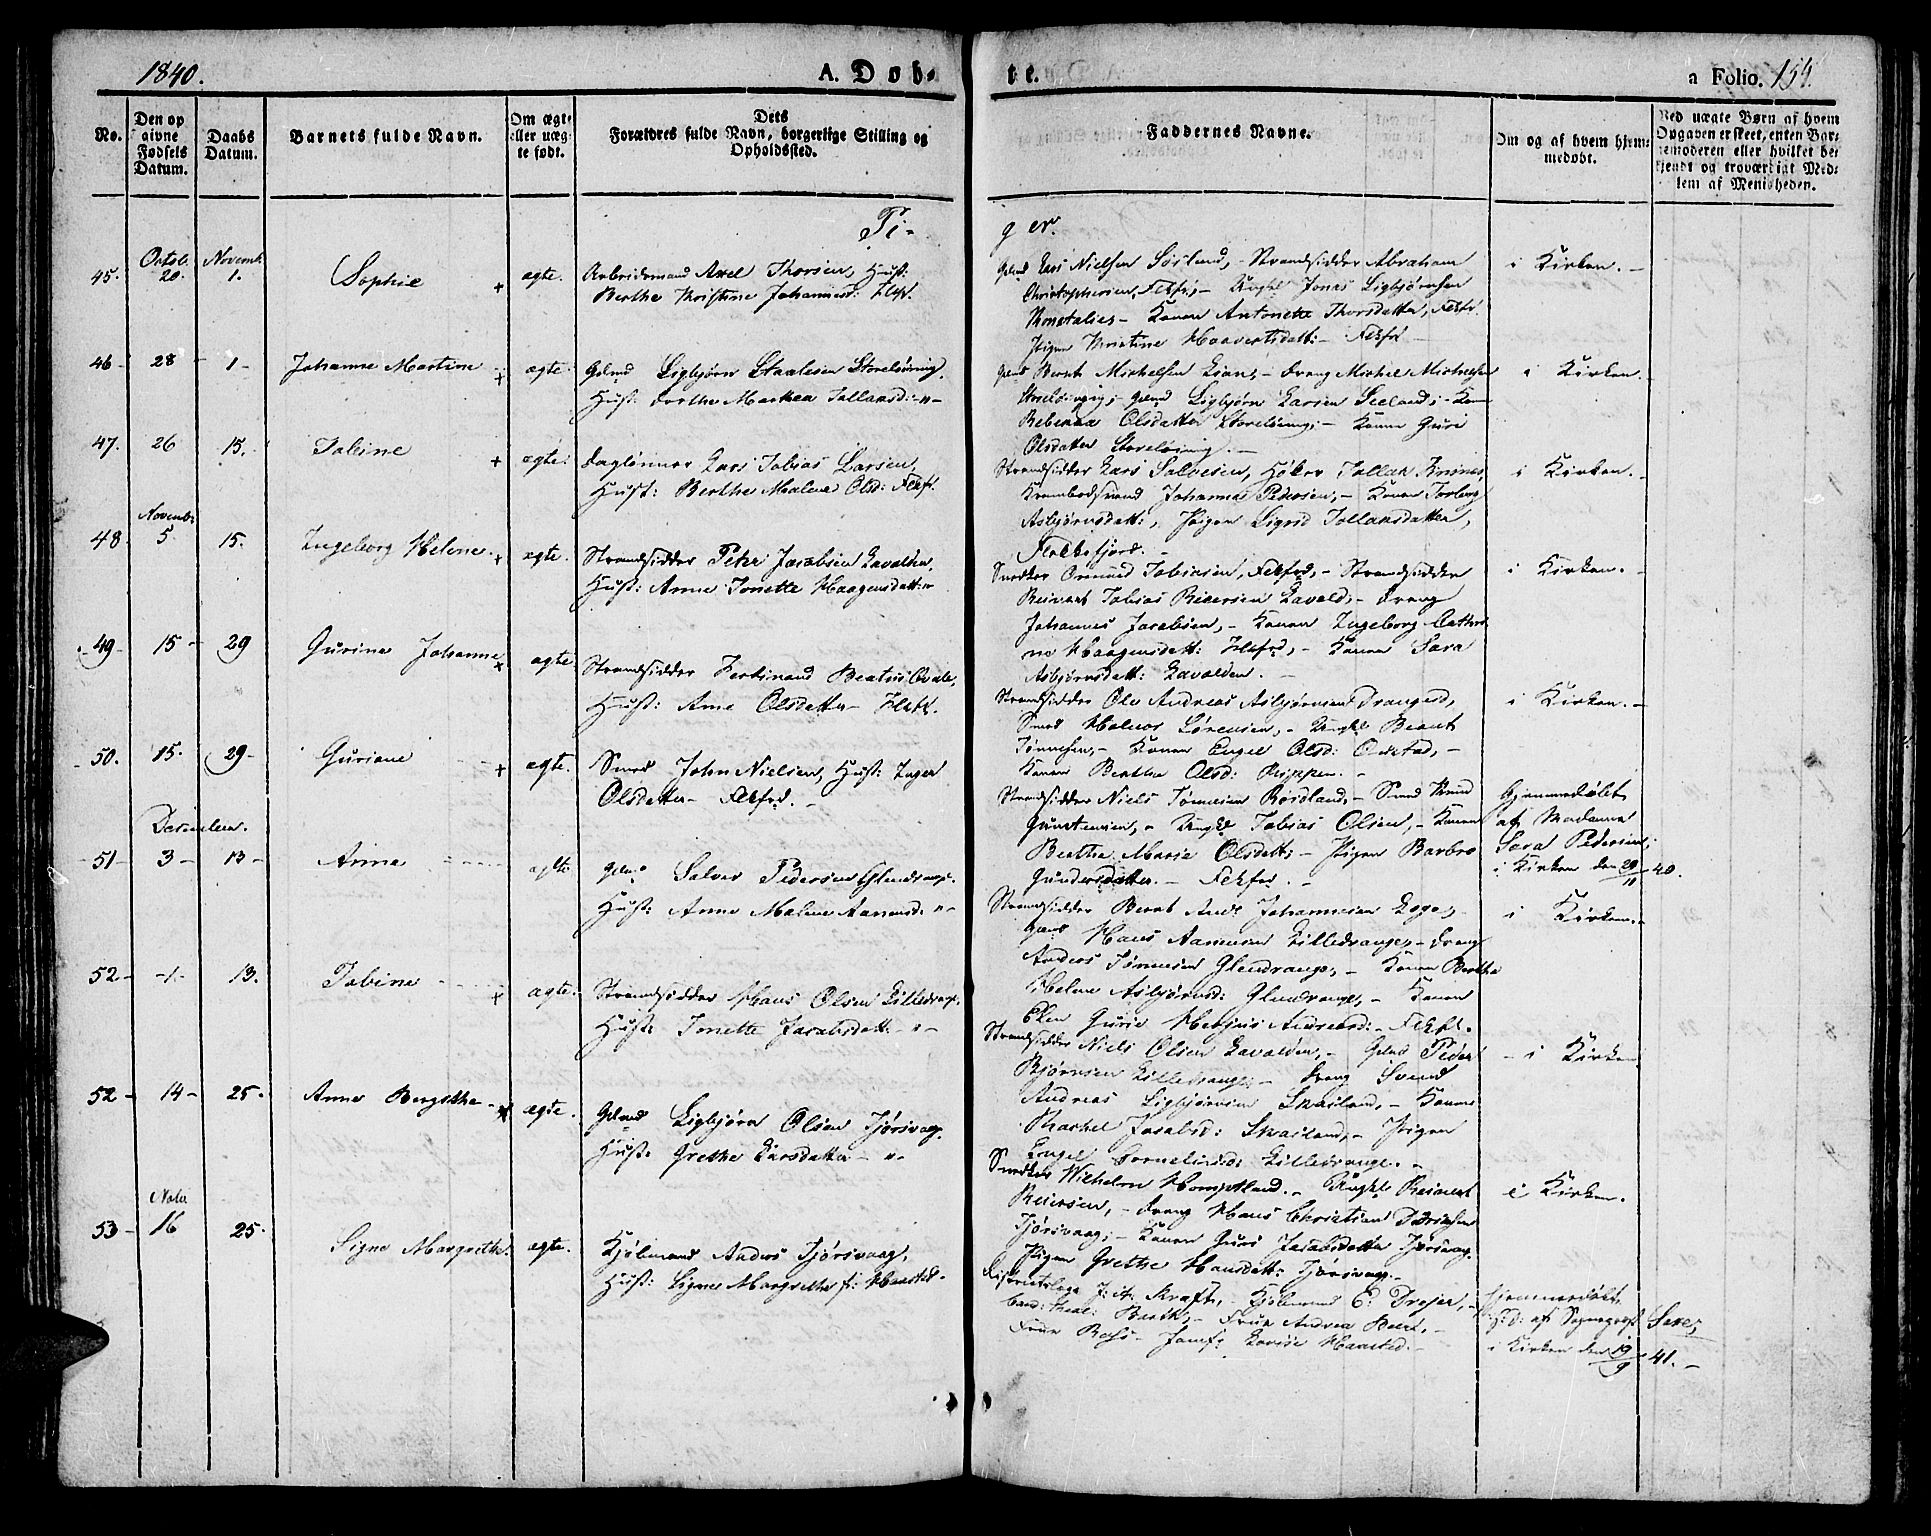 1840.
A. Døb-
te.
a Folio. 154.
No.
Den op
givne
Fødsels
Datum.
Daabs
Datum.
Barnets fulde Navn.
Om ægte
eller uæg-
te født.
Dets
Forældres fulde Navn, borgerlige Stilling og
Opholdssted.
Faddernes Navne.
Om og af hvem hjem-
medøbt.
Ved uægte Børn af hvem
Opgaven er skeet, enten Bar-
nemoderen eller hvilket be-
kjendt og troværdigt Med-
lem af Menigheden.
Pi-
ger.
45. Octob. 20. Novemb. 1. Sophie + ægte.
Arbeidsmand Axel Thorsen, Hust:
Berthe Kristine Johannesd:
Gdmd Lars Nielsen Sørland, - Strandsidder Abraham
Christophersen, Fekfr, - Ungkl Jonas Sigbjørnsen
- Konen Antonette Thorsdatter, Fekfr.
Pigen Kristine Haavortsdatt: - Fekfd
i Kirken. -
46 - 28 - 1 - Johanne Martine + ægte.
Gdmd Sigbjørn Staalesen Storeløining,
Hust: Dorthe Marthea Tollaksd: -"-
Gdmd Bernt Michelsen Lian, - Dreng Michel Michelsen
Storeløining, - Gdmd Sigbjørn Larsen Seeland, - Konen
Rebekka Olsdatter Storeløining; - Konen Guri
Olsdatter Storeløining. -
i Kirken. -
47. 26 15. Tobine + ægte.
Daglønner Lars Tobias Larsen,
Hust: Berthe Malene Olsd: Fekf.
Strandsidder Lars Salvesen, Høker Tollak
Krambodsvend Johannes Pedersen, - Konen Torborg
Asbjørnsdatt:, Pigen Sigrid Tollaksdatter,
Flekkefjord. -
i Kirken. -
48. Novemb: 5 15. Ingeborg Helene + ægte.
Strandsidder Peter Jacobsen Lavolden,
Hust: Anne Tonette Haagensdatt: "
Snedker Ommund Tobiasen, Fekfrd, - Strandsidder
Reinert Tobias Reiersen Lavold, - Dreng
Johannes Jacobsen, - Konen Ingeborg Cathri-
ne Haagensdatt: - Konen Sara
Asbjørnsdatt: Lavolden. -
i Kirken. -
49 - 15 - 29 Gurine Johanne + ægte
Strandsidder Ferdinand Beatus
Hust: Ane Olsdatter -
Strandsidder Ole Andreas Asbjørnsen Drangeid,
Smed Halvor Sørensen, - Ungkl Bernt
Tønnesen, - Konen Engel Olsd:
Konen Berthe Olsd:
i Kirken. -
50. 15. 29 - Guriane + ægte.
Smed John Nielsen, Hust: Inger
Olsdatter - Fekfrd. -
Strandsidder Niels Tønnesen Røsland, - Smed Knud
Gunstensen, - Ungkl Tobias Olsen, - Konen
Berthe Marie Olsdatt: - Pigen Barbro
Gundersdatter. - Fekfrd. -
Hjemmedøbt
af Madame
Sara Pedersen;
i Kirken den 29/11 40.
December.
51 - 3 - 13 - Anne ægte
Gdmd Salve Pedersen Glendrange.
Hust: Anne Malene Aanensd: "-
Strandsidder Bernt And: Johannesen
Gdmd Hans Aanensen Lilledrange, - Dreng
Anders Tønnesen Glendrange, - Konen Berthe
Helene Asbjørnsd: Glendrange, - Konen
Elen Gurie Andreasd: - Fekfd.
i Kirken. -
52 - -1- 13. Tobine + ægte.
Strandsidder Hans Olsen Lilledrange.
Hust: Tonette Jacobsdatt: -"-
Strandsidder Niels Olsen Lavolden, - Gdmd Peder
Bjørnsen Lilledrange, - Dreng Svend
Andreas Sigbjørnsen - Konen
Rachel Jacobsd: - Pigen
Engel Corneliusd: Lilledrange. -
- i Kirken
52 - 14 - 25. Anne Bergithe - + ægte.
Gdmd Sigbjørn Olsen Tjørsvaag.
Hust: Grethe Larsdatter - "-
Snedker Wilhelm Homptland. - Ungkl Reinert
Reiersen, - Dreng Hans Christian
Tjørsvaag; - Konen Guri Jacobsdatter Tjørsvaag.
Pigen Grethe Hansdatt: Tjørsvaag. -
i Kirken.
53 - Nobr 16 25. Signe Margrethe. ægte.
Kjøbmand Anders Tjørsvaag,
Hust: Signe Margrethe f: Hansted -
Districtslæge J: A: Kraft, - Kjøbmand E: Dreyer, -
Cand: theol: Barth, - Frue Andrea Beer, -
Frue - Jomf: Lovise Hansted. -
Hjemmedøbt
af Sognepræst
i Kirken den 19/9 41. -